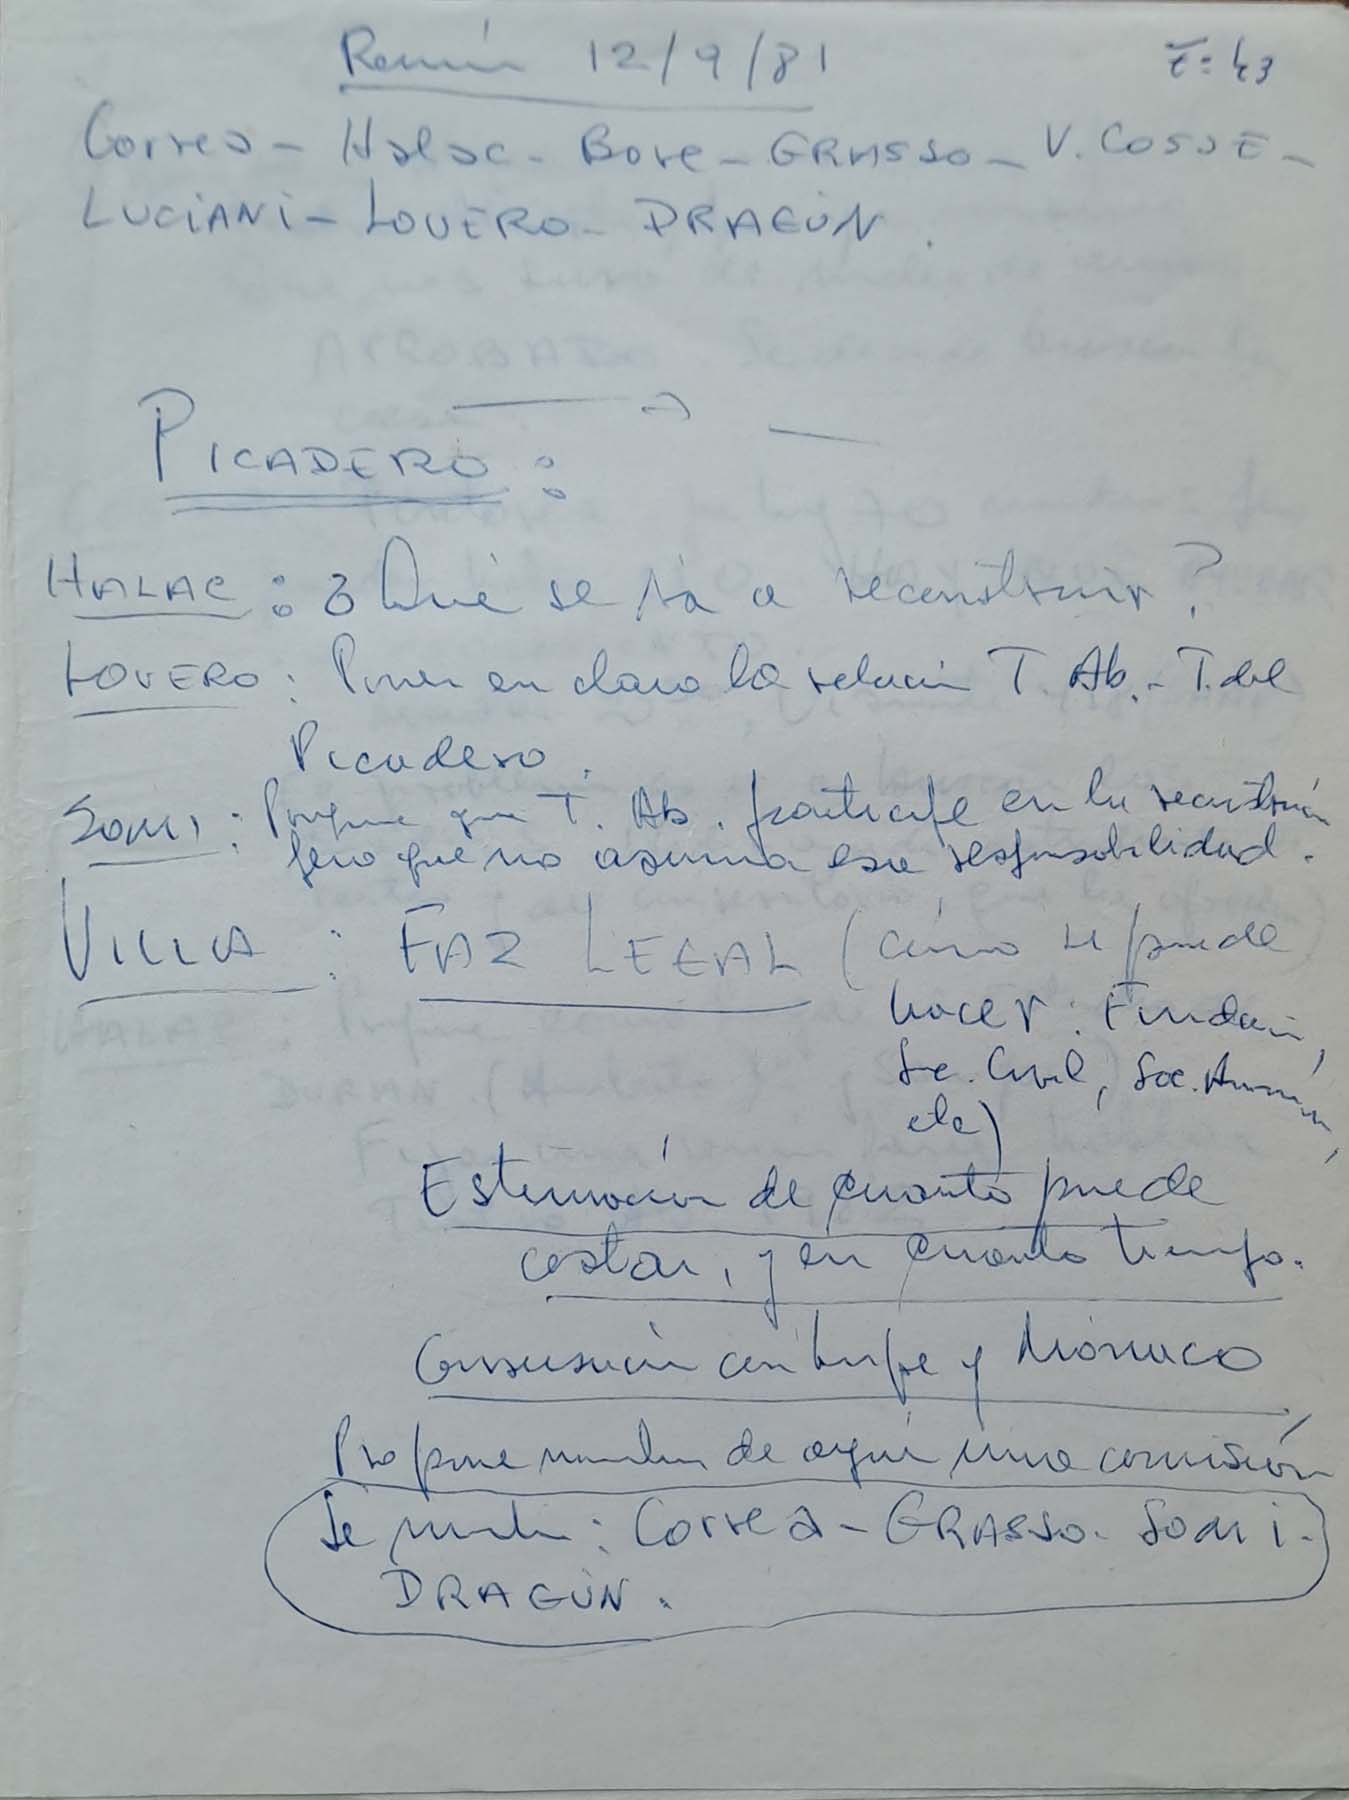 Reunión 12/9/81
Correa - Halac - Bove - GRASSO - V. COSSE -
LUCIANI - LOVERO - DRAGÚN.
PICADERO:
HALAC: ¿Qué se va a reconstruir?
LOVERO: Poner en claro la relación T. Ab. - T. del
Picadero.
SOMI: Propone que T. Ab. participe en la reconstrucción
pero que no asuma esa responsabilidad.
VILLA: FAZ LEGAL (cómo se puede
hacer: Fundación,
Soc. Civil, Soc. Anónima,
etc)
Estimación de cuanto puede
costar, y en cuanto tiempo.
Conversación con Lupe y Mónaco
Propone nombrar de aquí una comisión
Se nombra: Correa - GRASSO - Somi -
DRAGÚN.